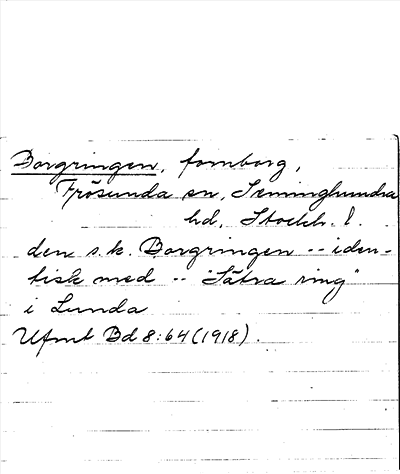 Borgringen, fornborg,
Frösunda sn, Seminghundra
hd, Stockh. l.
den s.k. Borgringen -- iden-
tisk med -- "Sätra ring"
i Lunda
Ufmt Bd 8:64 (1918).